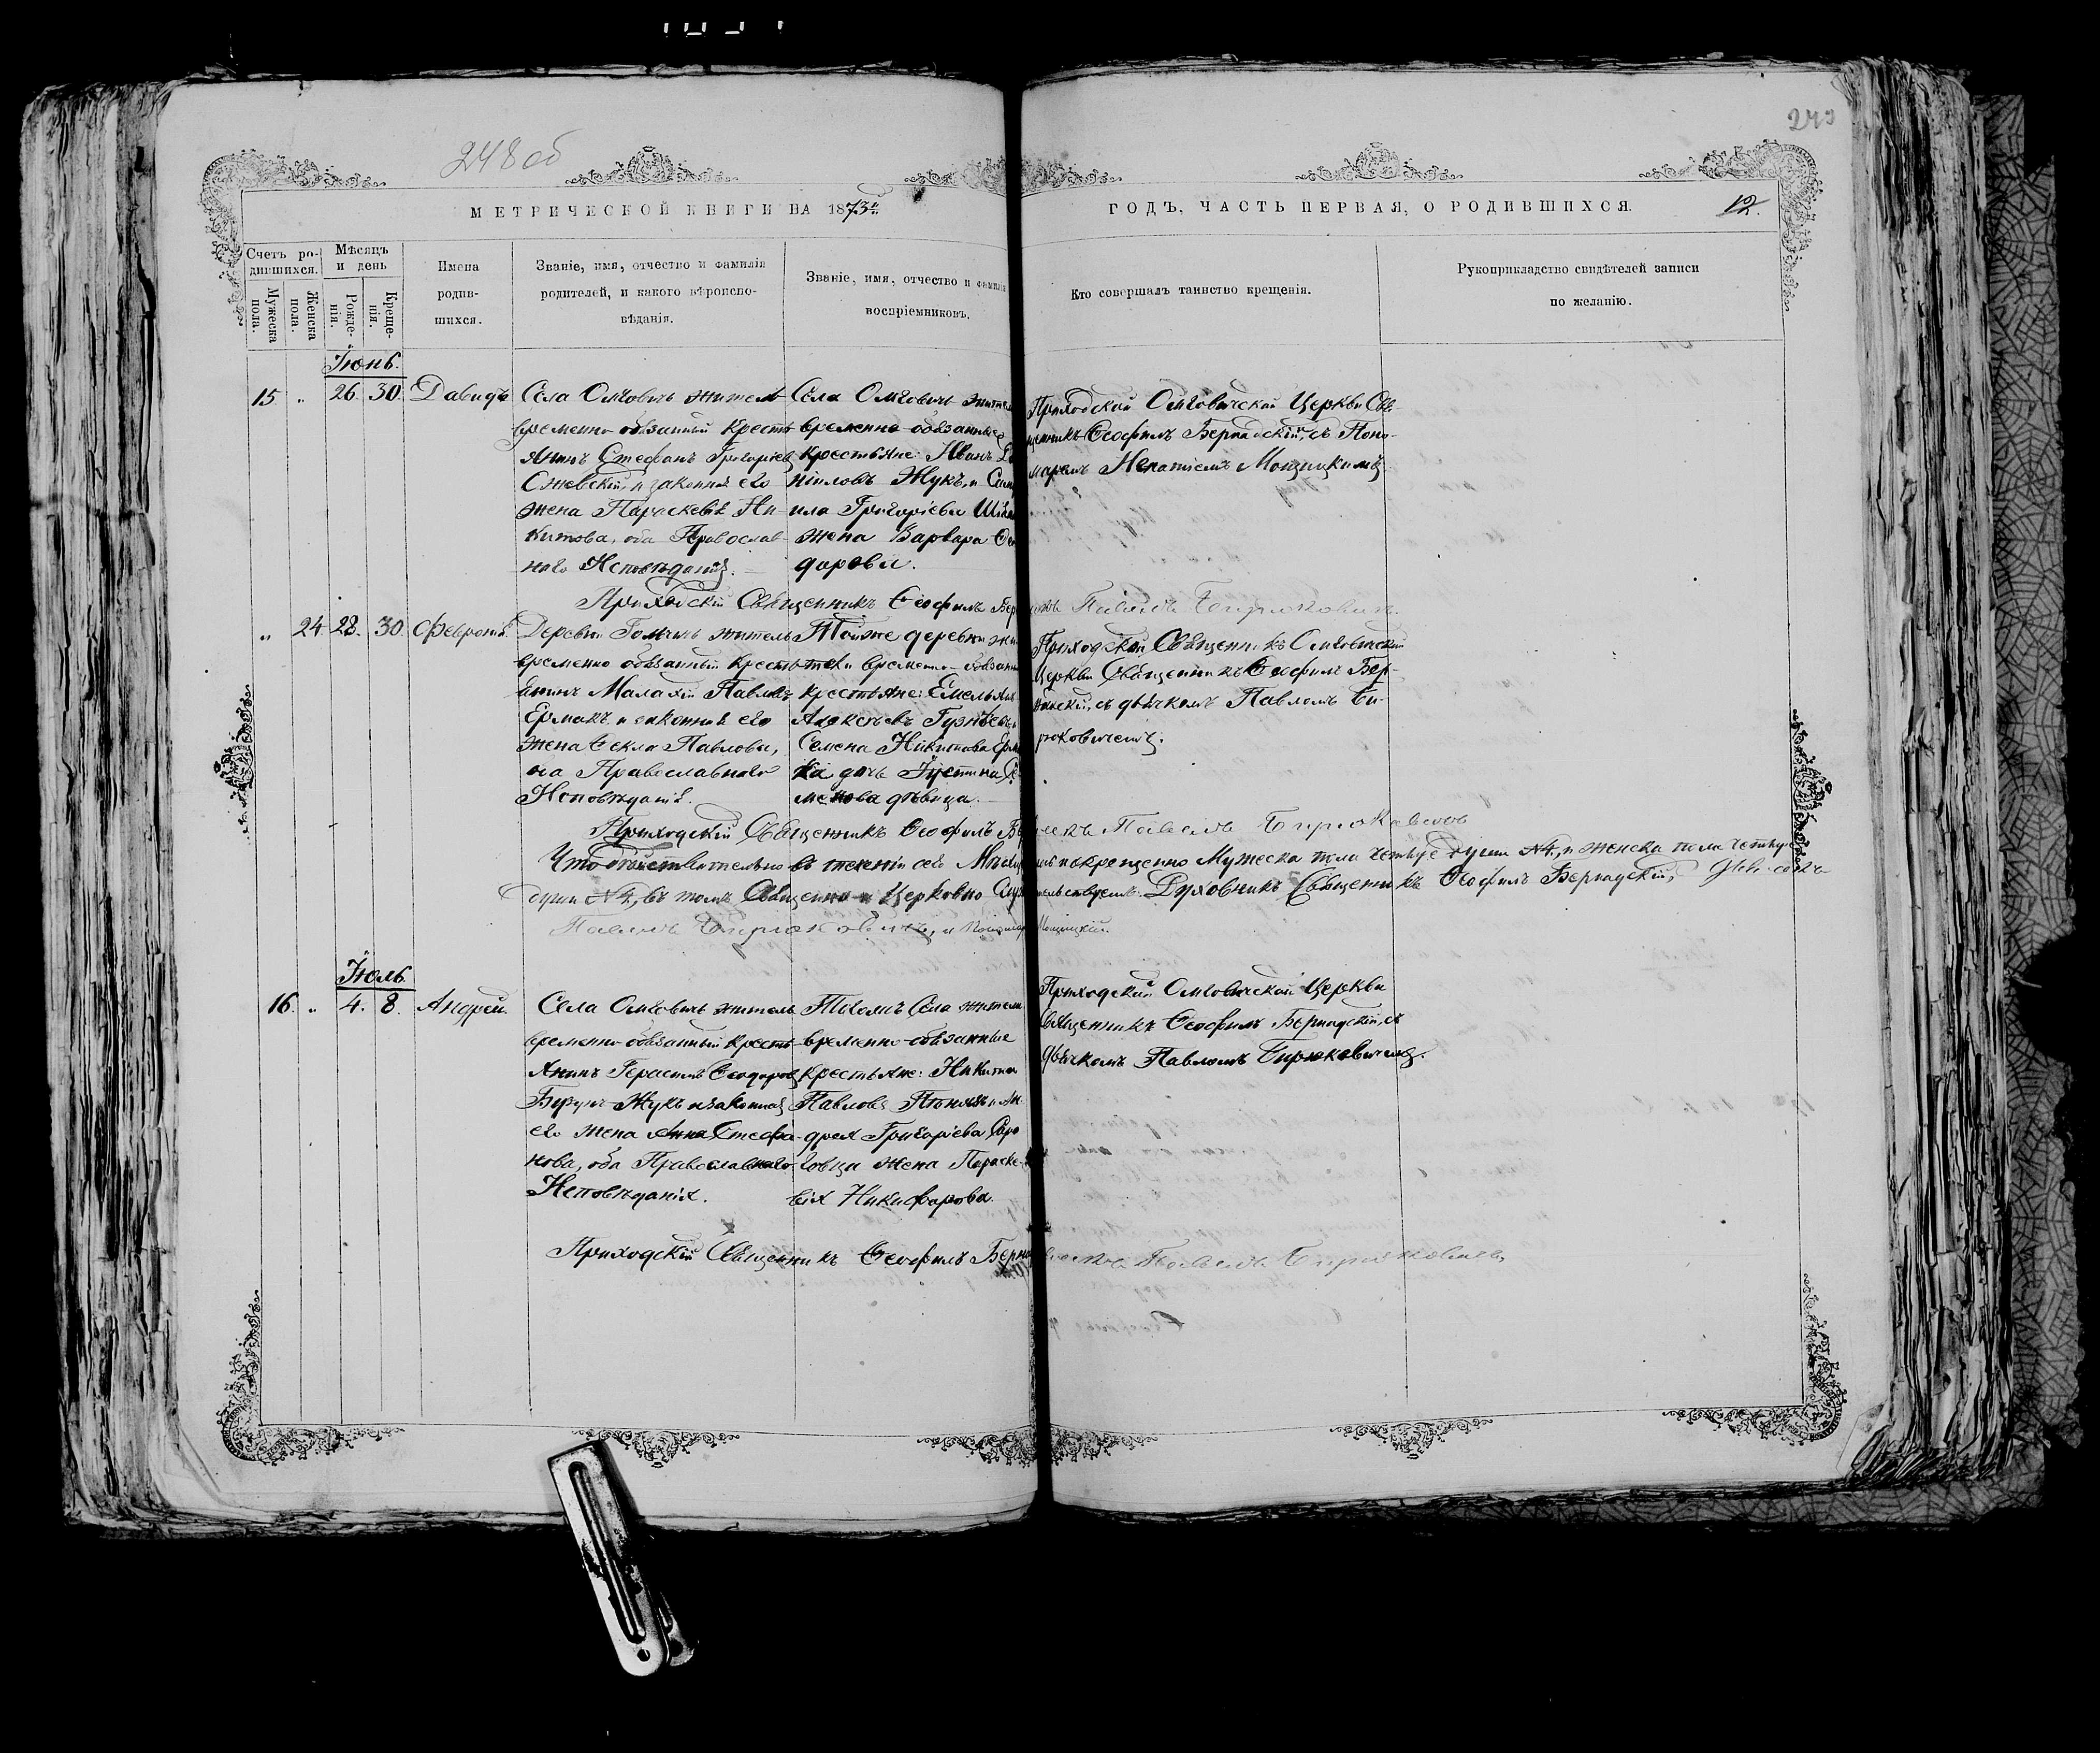 248 об
МЕТРИЧЕСКОЙ КНИГИ НА 1873й
ГОДЪ, ЧАСТЬ ПЕРВАЯ, О РОДИВШИХСЯ.
12.
Счетъ ро-
дившихся.
Мужеска
пола.
Женска
пола.
Мѣсяцъ
и день
Рожде-
нія.
Креще-
нія.
Имена
родив-
шихся.
Званіе, имя, отчество и фамилія
родителей, и какого вѣроиспо-
вѣданія.
Званіе, имя, отчество и фамилія
воспріемниковъ.
Кто совершалъ таинство крещенія.
Рукоприкладство свидѣтелей записи
по желанію.
Іюнь.
15 " 26. 30. Давидъ
Села Омговичъ житель
временно обязанный кресть-
янинъ Стефанъ Григоріевъ
и законная его
жена Параскева Ни-
китова, оба Православ-
наго Исповѣданія.
Села Омговичъ
временно-обязанные
крестьяне: Иванъ
ниловъ Жукъ, и
ила Григоріева
жена Варвара Ѳео
дорова.
Приходской Омговичской Церкви Свя-
щенникъ Ѳеофилъ Бернадскій, съ Поно-
маремъ Игнатіемъ Мощицкимъ
Приходскій Священникъ Ѳеофилъ Бер
Павелъ Бирюковичъ
" 24. 28. 30. Февронія
Деревни житель
временно обязанный кресть-
янинъ Малахій Павловъ
Ермакъ и законная его
жена Ѳекла Павлова,
оба Православнаго
Исповѣданія.
Тойже деревни
временно-обязан
крестьяне: Емельянъ
Алексѣевъ
Семена Никитова
ка дочь Іустина Се
менова дѣвица.
Приходской Священникъ Омговичской
Церкви Священникъ Ѳеофилъ Бер-
надскій, съ дьячкомъ Павломъ Би-
рюковичемъ.
Приходскій Священникъ Ѳеофилъ Бе
Павелъ Бирюковичъ
Что дѣйствительно въ теченіи сего Мѣсяца покрещено Мужеска пола четыре души №4, и женска пола четыре
души №4, въ томъ Священно и Церковно Служительствуемъ. Духовникъ Священникъ Ѳеофилъ Бернадскій,
Павелъ Бирюковичъ, и Пономарь Мощицкій.
Іюль.
16. " 4. 8. Андрей.
Села Омговичъ житель
временно обязанный кресть-
янинъ Герасимъ Ѳеодоровъ
Жукъ и законная
его жена Анна Стефа-
нова, оба Православнаго
Исповѣданія.
Тогомъ Села жители
временно-обязанные
крестьяне: Никита
Павловъ и Ан
дрея Григоріева
жена Параске-
вія Никифорова.
Приходской Омговичской Церкви
Священникъ Ѳеофилъ Бернадскій, съ
дьячкомъ Павломъ Бирюковичемъ.
Приходскій Священникъ Ѳеофилъ Берна
Павелъ Бирюковичъ